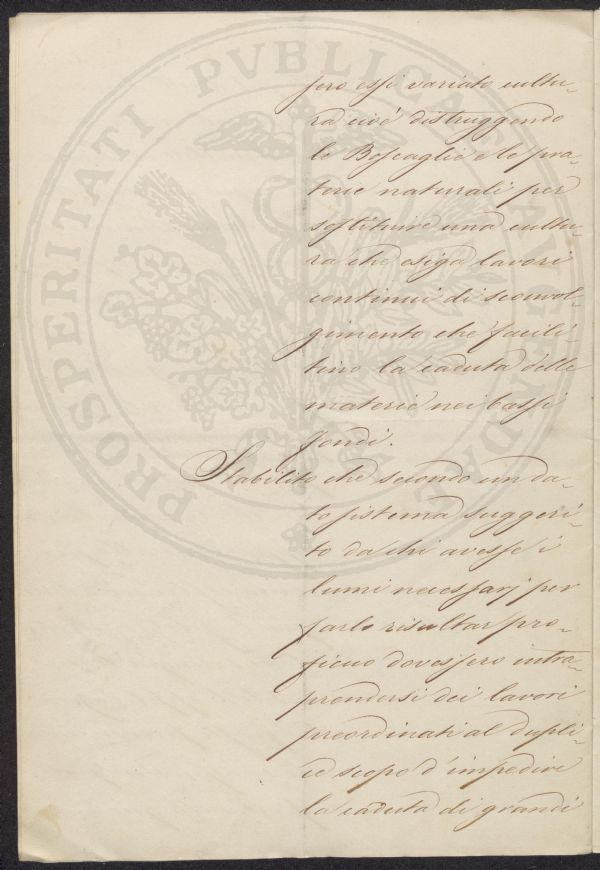 sero essi variato cultu-
ra cioé distruggendo
le Boscaglie e le pra-
terie naturali per
sostituire una cultu-
ra che esiga lavori
continui di sconvol-
gimento che facili-
tino la caduta delle
materie nei bassi
fondi.
Stabilito che secondo un da-
to sistema suggeri-
to da chi avesse i
lumi necessarj per
farlo risultar pro-
ficuo dovessero intra-
prendersi dei lavori
preordinati al dupli-
ce scopo d'impedire
la caduta di grandi
PROSPERITATI PVBLICAE AVGENDAE